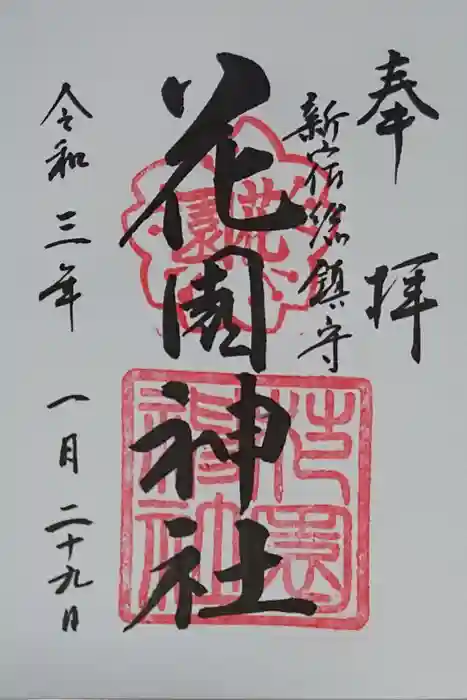 奉拝
新宿総鎮守
花園神社
令和三年一月二十九日
花園
花園神社